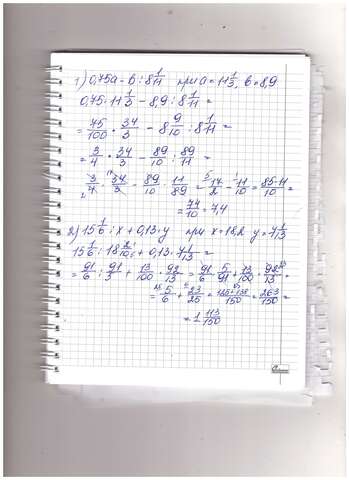 1) 0,75a - b : 8 1/11 при a = 11 1/3, b = 8,9
0,75 · 11 1/3 - 8,9 : 8 1/11 =
= 75/100 · 34/3 - 8 9/10 : 8 1/11 =
= 3/4 · 34/3 - 89/10 : 89/11 =
3/4 · 34/3 - 89/10 · 11/89 = 17/2 - 11/10 = 85-11/10 =
= 74/10 = 7,4
2) 15 1/6 : x + 0,13 · y при x = 18,2 y = 7 1/13
15 1/6 : 18 2/10 + 0,13 · 7 1/13 =
= 91/6 : 91/5 + 13/100 · 92/13 = 91/6 · 5/91 + 13/100 · 92/13 =
= 5/6 + 23/25 = 125+138/150 = 263/150 =
= 1 113/150